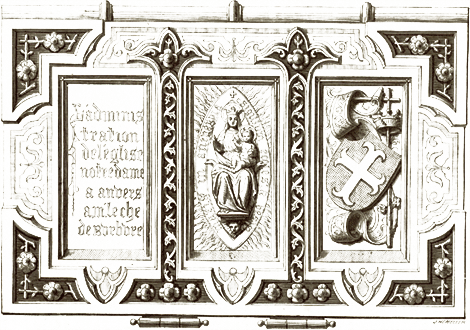 L'adminis
tration
de leglise
notredame
a anvers
a m le che
de Burbure